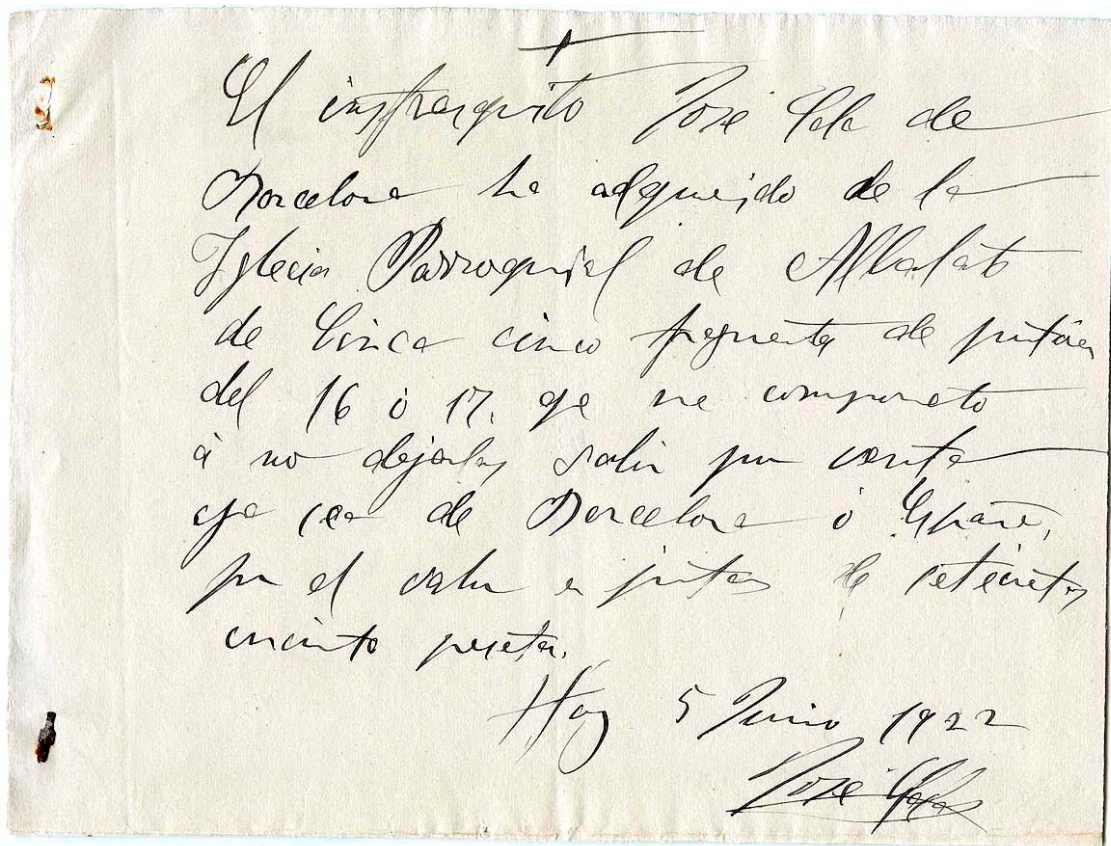 El infrasquito José Sala de
Barcelona ha adquirido de la
Iglecia Parroquial de Albalat
de Cinca cinco fragmentos de pinturas
del 16 ó 17. qe me comprometo
á no dejarlas salir por venta
ya sea de Barcelona ó España,
por el valor en juntas de setecientas
cincuenta pesetas.
Hoy 5 Junio 1922
José Sala